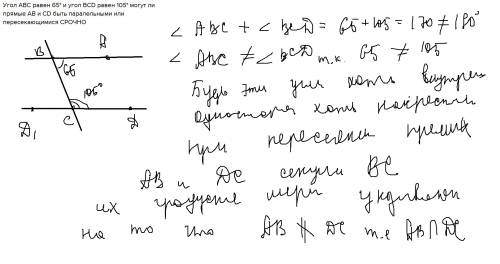 Угол ABC равен 65° и угол BCD равен 105° могут ли
прямые AB и CD быть паралельными или
пересекающимися СРОЧНО
B
A
65
105°
D₁
C
D
∠ ABC + ∠ BCD = 65+105 = 170 ≠ 180°
∠ ABC ≠ ∠ BCD т.к. 65 ≠ 105
Будь эти углы хоть внутрен
односторон хоть накрестл
при пересечении прямых
AB и DC секущи BC
их градусные меры указывают
на то что AB ∦ DC т.е AB ∩ DC